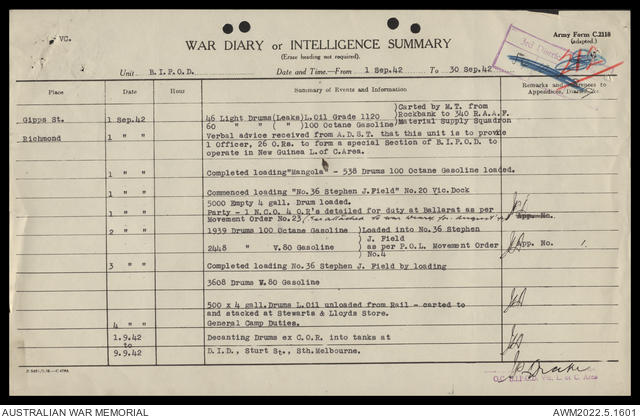 VC.
WAR DIARY or INTELLIGENCE SUMMARY
(Erase heading not required).
Army Form C.2118
(adapted.)
3rd District
Unit B.I.P.O.D. Date and Time—From 1 Sep.42 To 30 Sep.42
Place Date Hour Summary of Events and Information Remarks and References to Appendices, Diaries &c
Gipps St. 1 Sep.42 46 Light Drums(Leaks)L.Oil Grade 1120 )Carted by M.T. from
)Rockbank to 340 R.A.A.F.
60 " ( " )100 Octane Gasoline)Material Supply Squadron
Richmond 1 " " Verbal advice received from A.D.S.T. that this unit is to provide
1 Officer, 26 O.Rs. to form a special Section of B.I.P.O.D. to
operate in New Guinea L.of C.Area.
1 " " Completed loading"Mangola" - 538 Drums 100 Octane Gasoline loaded.
1 " " Commenced loading "No.36 Stephen J.Field" No.20 Vic.Dock
5000 Empty 4 gall. Drum loaded.
1 " " Party - 1 N.C.O. 4 O.R's detailed for duty at Ballarat as per
Movement Order No.23 App. No.
2 " " 1939 Drums 100 Octane Gasoline )Loaded into No.36 Stephen
) J. Field
2448 " V.80 Gasoline ) as per P.O.L. Movement Order App. No. 1.
) No.4
3 " " Completed loading No.36 Stephen J. Field by loading
3608 Drums V.80 Gasoline
500 x 4 gall.Drums L.Oil unloaded from Rail - carted to
and stacked at Stewarts & Lloyds Store.
4 " " General Camp Duties.
1.9.42 Decanting Drums ex C.O.R. into tanks at
to
9.9.42 D.I.D., Sturt St., Sth.Melbourne.
O.C. B.I.P.O.D. Vic. L. of C. Area
AUSTRALIAN WAR MEMORIAL AWM2022.5.1601